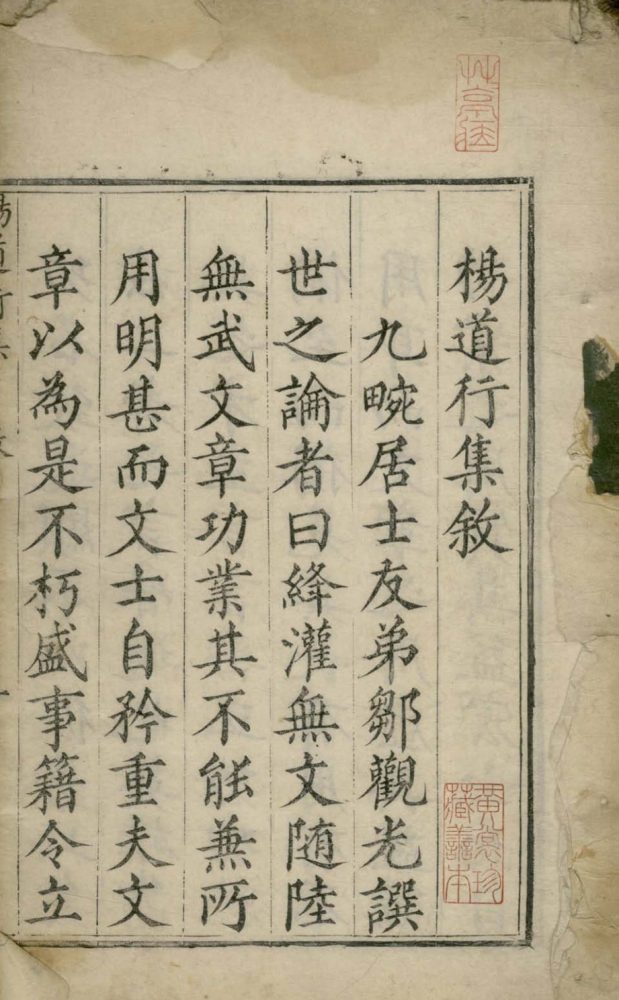 楊道行集敘
九畹居士友弟鄒觀光譔
世之論者曰絳灌無文随陸
無武文章功業其不能兼所
用明甚而文士自矜重夫文
章以為是不朽盛事籍令立